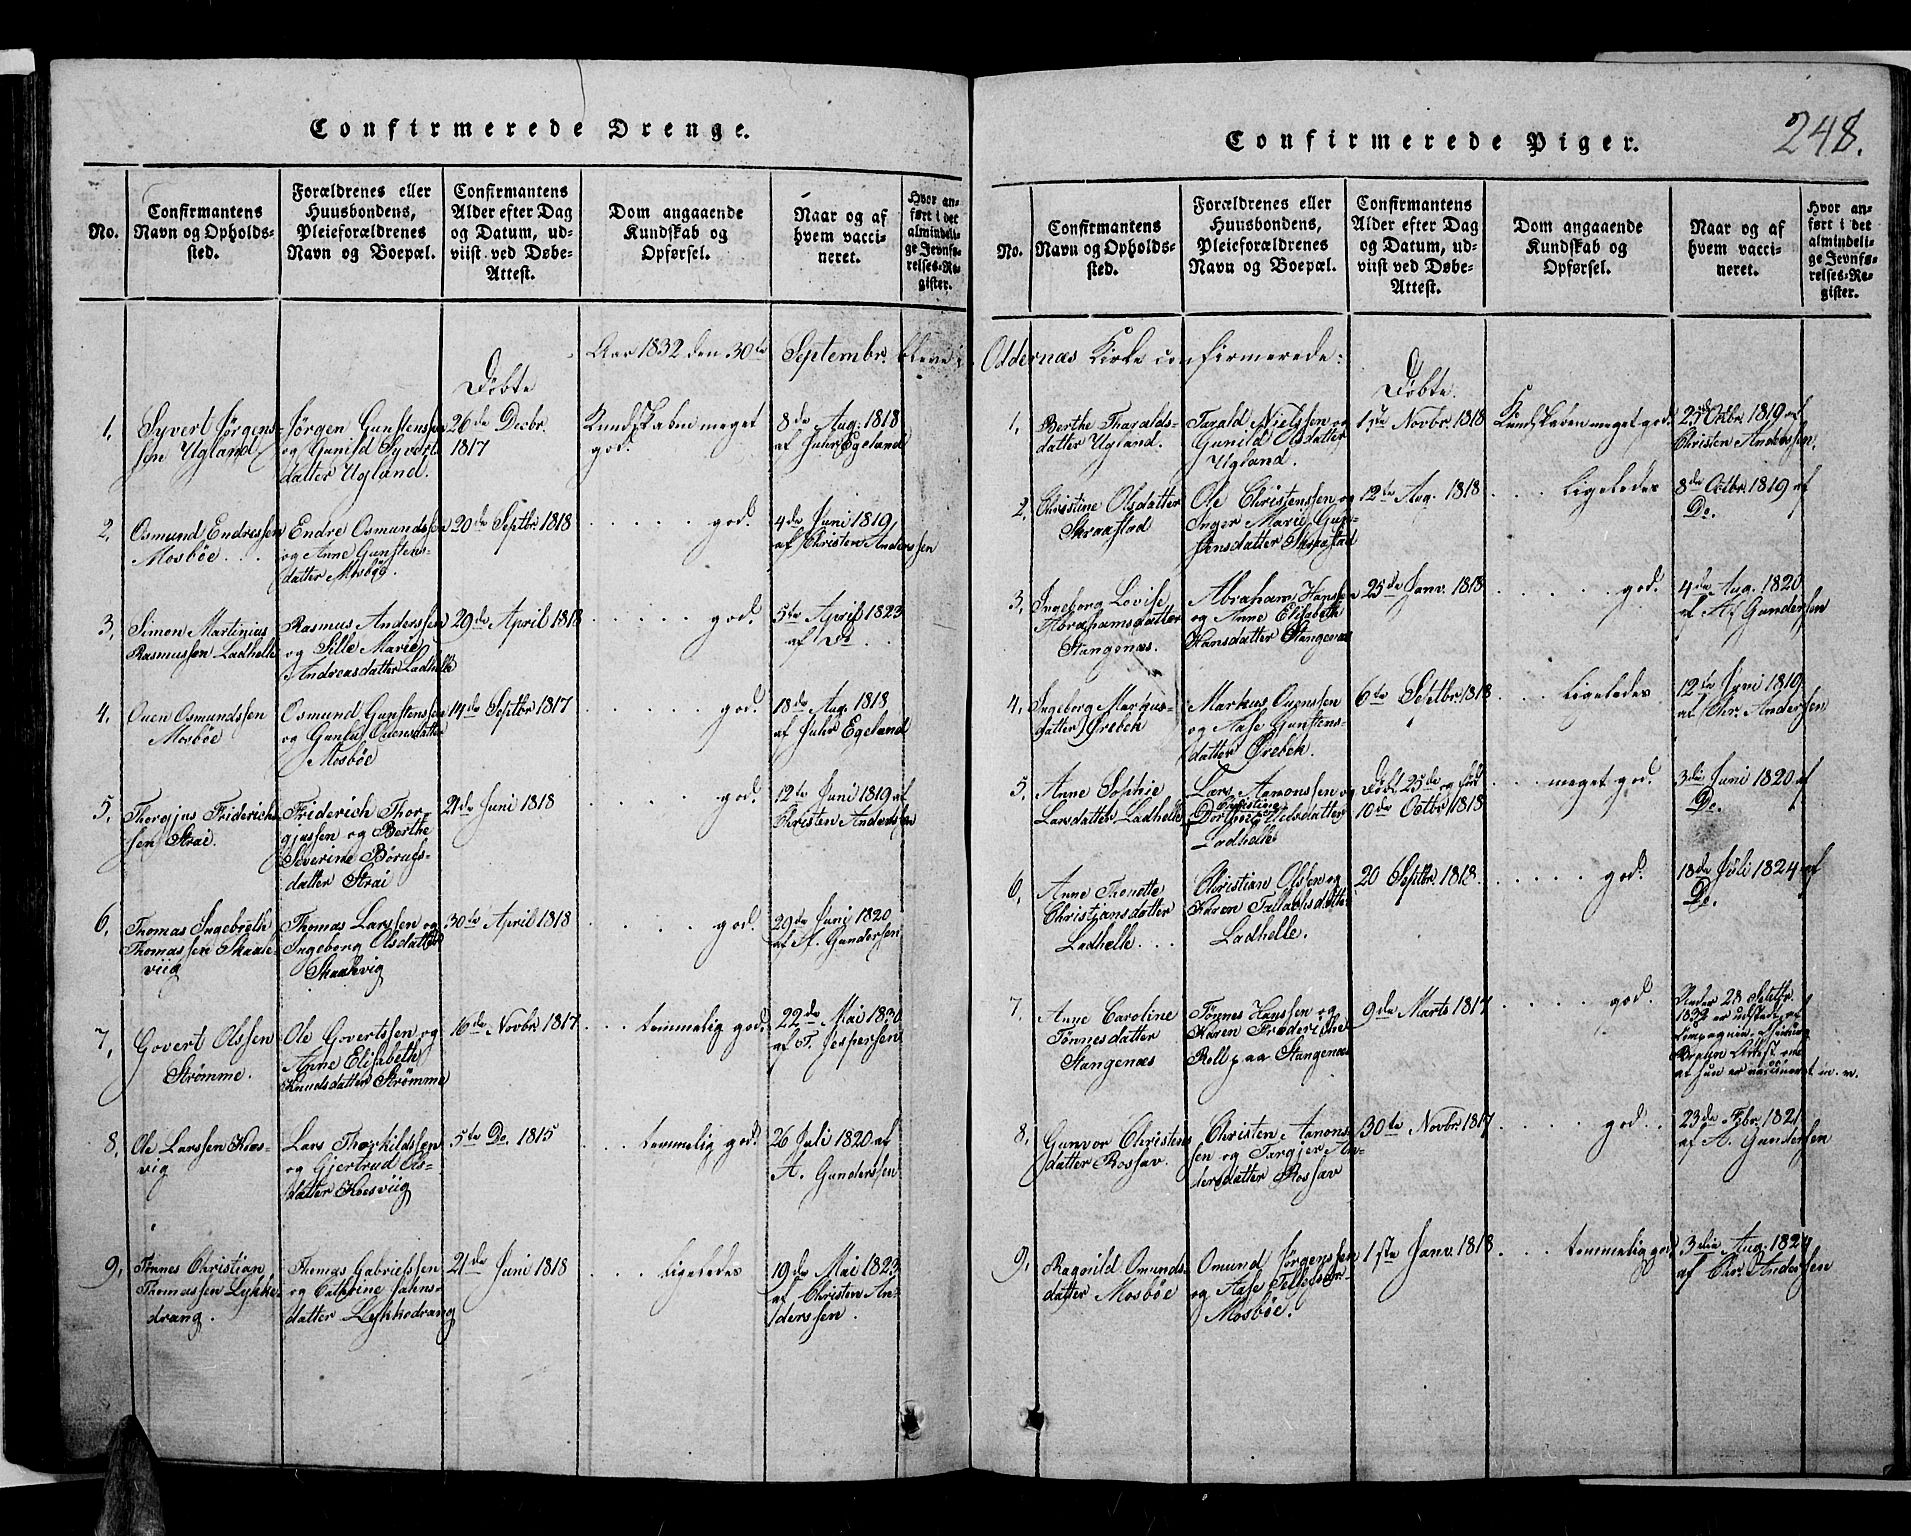 Confirmerede Drenge.
No.
Confirmantens
Navn og Opholds-
sted.
Forældrenes eller
Huusbondens,
Pleieforældrenes
Navn og Boepæl.
Confirmantens
Alder efter Dag
og Datum, ud-
viist ved Døbe-
Attest.
Dom angaaende
Kundskab og
Opførsel.
Naar og af
hvem vacci-
neret.
Hvor an-
ført i det
almindeli-
ge Jevnfø-
relses-Re-
gister.
Aar 1832 den 30te Septembr. bleve i
Døbte
1,
Syvert Jørgens-
sen Ugland
Jørgen Gunstenssen
og Gunild Syverts-
datter Ugland.
26de Decbr.
1817
Kundskaben meget
god.
8de Aug. 1818
af Juler Egeland
2,
Osmund Endressen
Mosbøe
Endre Osmundssen
og Anne Gunstens-
datter Mosbøe.
20de Septbr 1818
god.
4de Juni 1819
af Christen Anderssen
3,
Simon Martinius
Rasmussen Ladhelle
Rasmus Anderssen
og Sille Marie
Andreasdatter Ladhelle
29de April 1818
god.
5te April 1823
af Do
4,
Ouen Osmundssen
Mosbøe
Osmund Gunstenssen
og Gunlaug Ouensdatter
Mosbøe
14de Septbr 1817
god.
18de Aug. 1818
af Juler Egeland
5,
Thorgjus Friderichs-
sen Strai.
Friderich Thor-
gjussen og Berthe
Severine Børufs-
datter Strai
21de Juni 1818
god.
12te Juni 1819 af
Christen Anderssen
6,
Thomas Ingebreth
Thomassen Skaane-
viig
Thomas Larssen og
Ingeborg Olsdatter
Skaanevig
30te April 1818
god.
29de Juni 1820
af A. Gunderssen
7,
Govert Olssen
Strømme.
Ole Govertssen og
Anne Elisabeth
Knudsdatter Strømme
16de Novbr 1817
temmelig god.
22de Mai 1830
af T. Jespersen
8,
Ole Larssen Koes-
vig
Lars Thorkildssen
og Gjertrud Ols-
datter Koesviig
5te De. 1815
temmelig god.
26 Juli 1820 af
A. Gunderssen
9,
Tønnes Christian
Thomassen Lykke-
drang.
Thomas Gabrielssen
og Cathrine Jahns-
datter Lykkedrang
21de Juni 1818
Ligeledes
19de Mai 1823
af Christen An-
derssen.
Confirmerede Piger.
248.
No.
Confirmantens
Navn og Opholds-
sted.
Forældrenes eller
Huusbondens,
Pleieforældrenes
Navn og Boepæl.
Confirmantens
Alder efter Dag
og Datum, ud-
viist ved Døbe-
Attest.
Dom angaaende
Kundskab og
Opførsel.
Naar og af
hvem vacci-
neret.
Hvor an-
ført i det
almindeli-
ge Jevnfø-
relses-Re-
gister.
Oddernæs Kirke confirmerede:
Døbte.
1,
Berthe Tharalds-
datter Ugland.
Tarald Nielssen og
Gunild Olsdatter
Ugland.
1ste Novbr 1818
Kundskaben meget god.
25de Octbr. 1819 af
Christen Anderssen.
2,
Christine Olsdatter
Skraastad
Ole Christenssen og
Inger Marie Gun-
stensdatter Skraastad
12te Aug. 1818
Ligeledes
8de Octbr 1819 af
De.
3,
Ingeborg Lovise
Abrahamsdatter
Stangenæs.
Abraham Hanssen
og Anne Elisabeth
Hansdatter Stangenæs
25de Janv. 1818
god.
4de Aug. 1820
af A. Gunderssen
4,
Ingeborg Markus-
datter Ørebek
Markus Ouenssen
og Aase Gunstens-
datter Ørebek.
6te Septbr 1818
Ligeledes
12te Juni 1819
af Chr. Andersen
5,
Anne Sophie
Larsdatter Ladhelle
Lars Aamonssen og
Christine
Dorthea Nielsdatter
Ladhelle
Døbt 25de og fød
10de Octbr 1818
meget god.
3die Juni 1820 af
De.
6,
Anne Thonette
Christiansdatter
Ladhelle
Christian Olssen og
Karen Tallachsdatter
Ladhelle.
20 Septbr 1818.
god.
18de Juli 1824 af
De.
7,
Anne Caroline
Tønnesdatter
Stangenæs
Tønnes Hanssen og
Karen Frederikke
Paa Stangenæs
9de Marts 1817
god.
Under 28 Septbr.
1832 er udstedt af
Compagnie Chirurg
Attest om
at hun er vaccineret m. v.
8,
Gunvor Christens
datter Rossav.
Christen Aanons-
sen og Targjer An-
dersdatter Rossav
30te Novbr 1817
god.
23de Febr. 1821
af A. Gunderssen
9,
Ragnild Omunds-
datter Mosbøe
Omund Jørgenssen
og Aase Tellefsdtr
Mosbøe.
1ste Janv. 1818
temmelig god
3die Aug. 1824
af Chr. Andersen